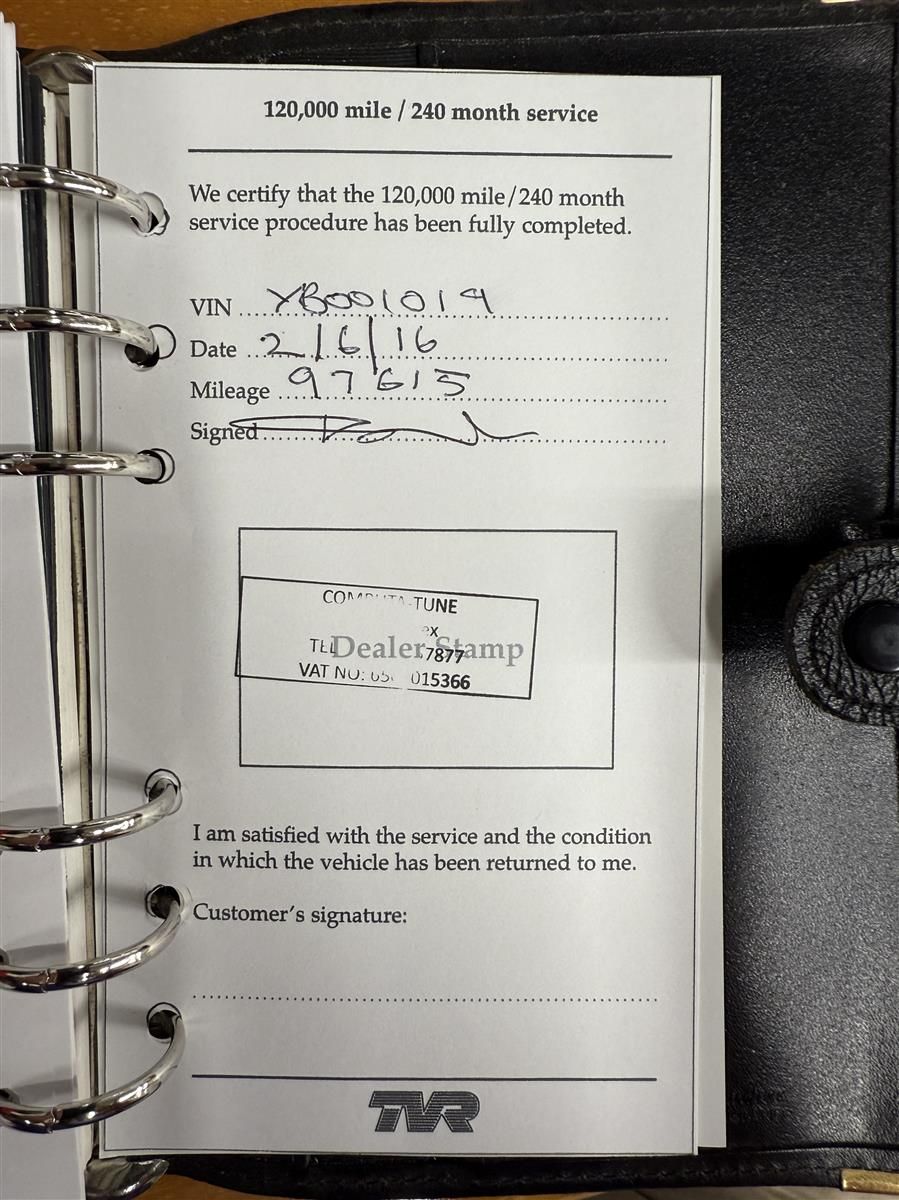 120,000 mile / 240 month service
We certify that the 120,000 mile/240 month
service procedure has been fully completed.
VIN YB001019
Date 2/6/16
Mileage 97615
Signed
-TUNE
Dealer Stamp
7877
VAT NO: 015366
I am satisfied with the service and the condition
in which the vehicle has been returned to me.
Customer's signature:
TVR